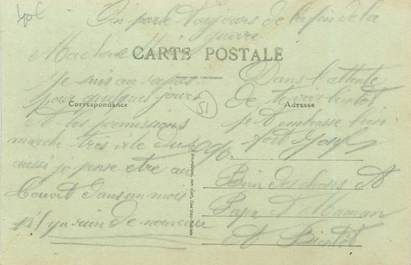 On parle toujours de la fin de la
guerre
CARTE POSTALE
Je suis au repos
pour quelques jours
Correspondance
et les permissions
marche très vite
aussi je pense être au
dans un mois
s'il y a rien de nouveau
51
Dans l'attente
Adresse
de te voir bientôt
je t'embrasse bien
fort Joseph
Bien des choses à
Papa et Maman
A Bientôt